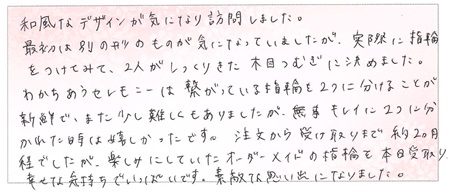 和風なデザインが気になり訪問しました。
最初は別の形のものが気になっていましたが、実際に指輪
をつけてみて、2人がしっくりきた木目つむぎに決めました。
わかちあうセレモニーは繋がっている指輪を2つに分けることが
新鮮で、また少し難しくもありましたが、無事キレイに2つに分
かれた時は嬉しかったです。注文から受け取りまで約2ヵ月
経でしたが、楽しみにしていたオーダーメイドの指輪を本日受取り
幸せな気持ちでいっぱいです。素敵な思い出になりました。